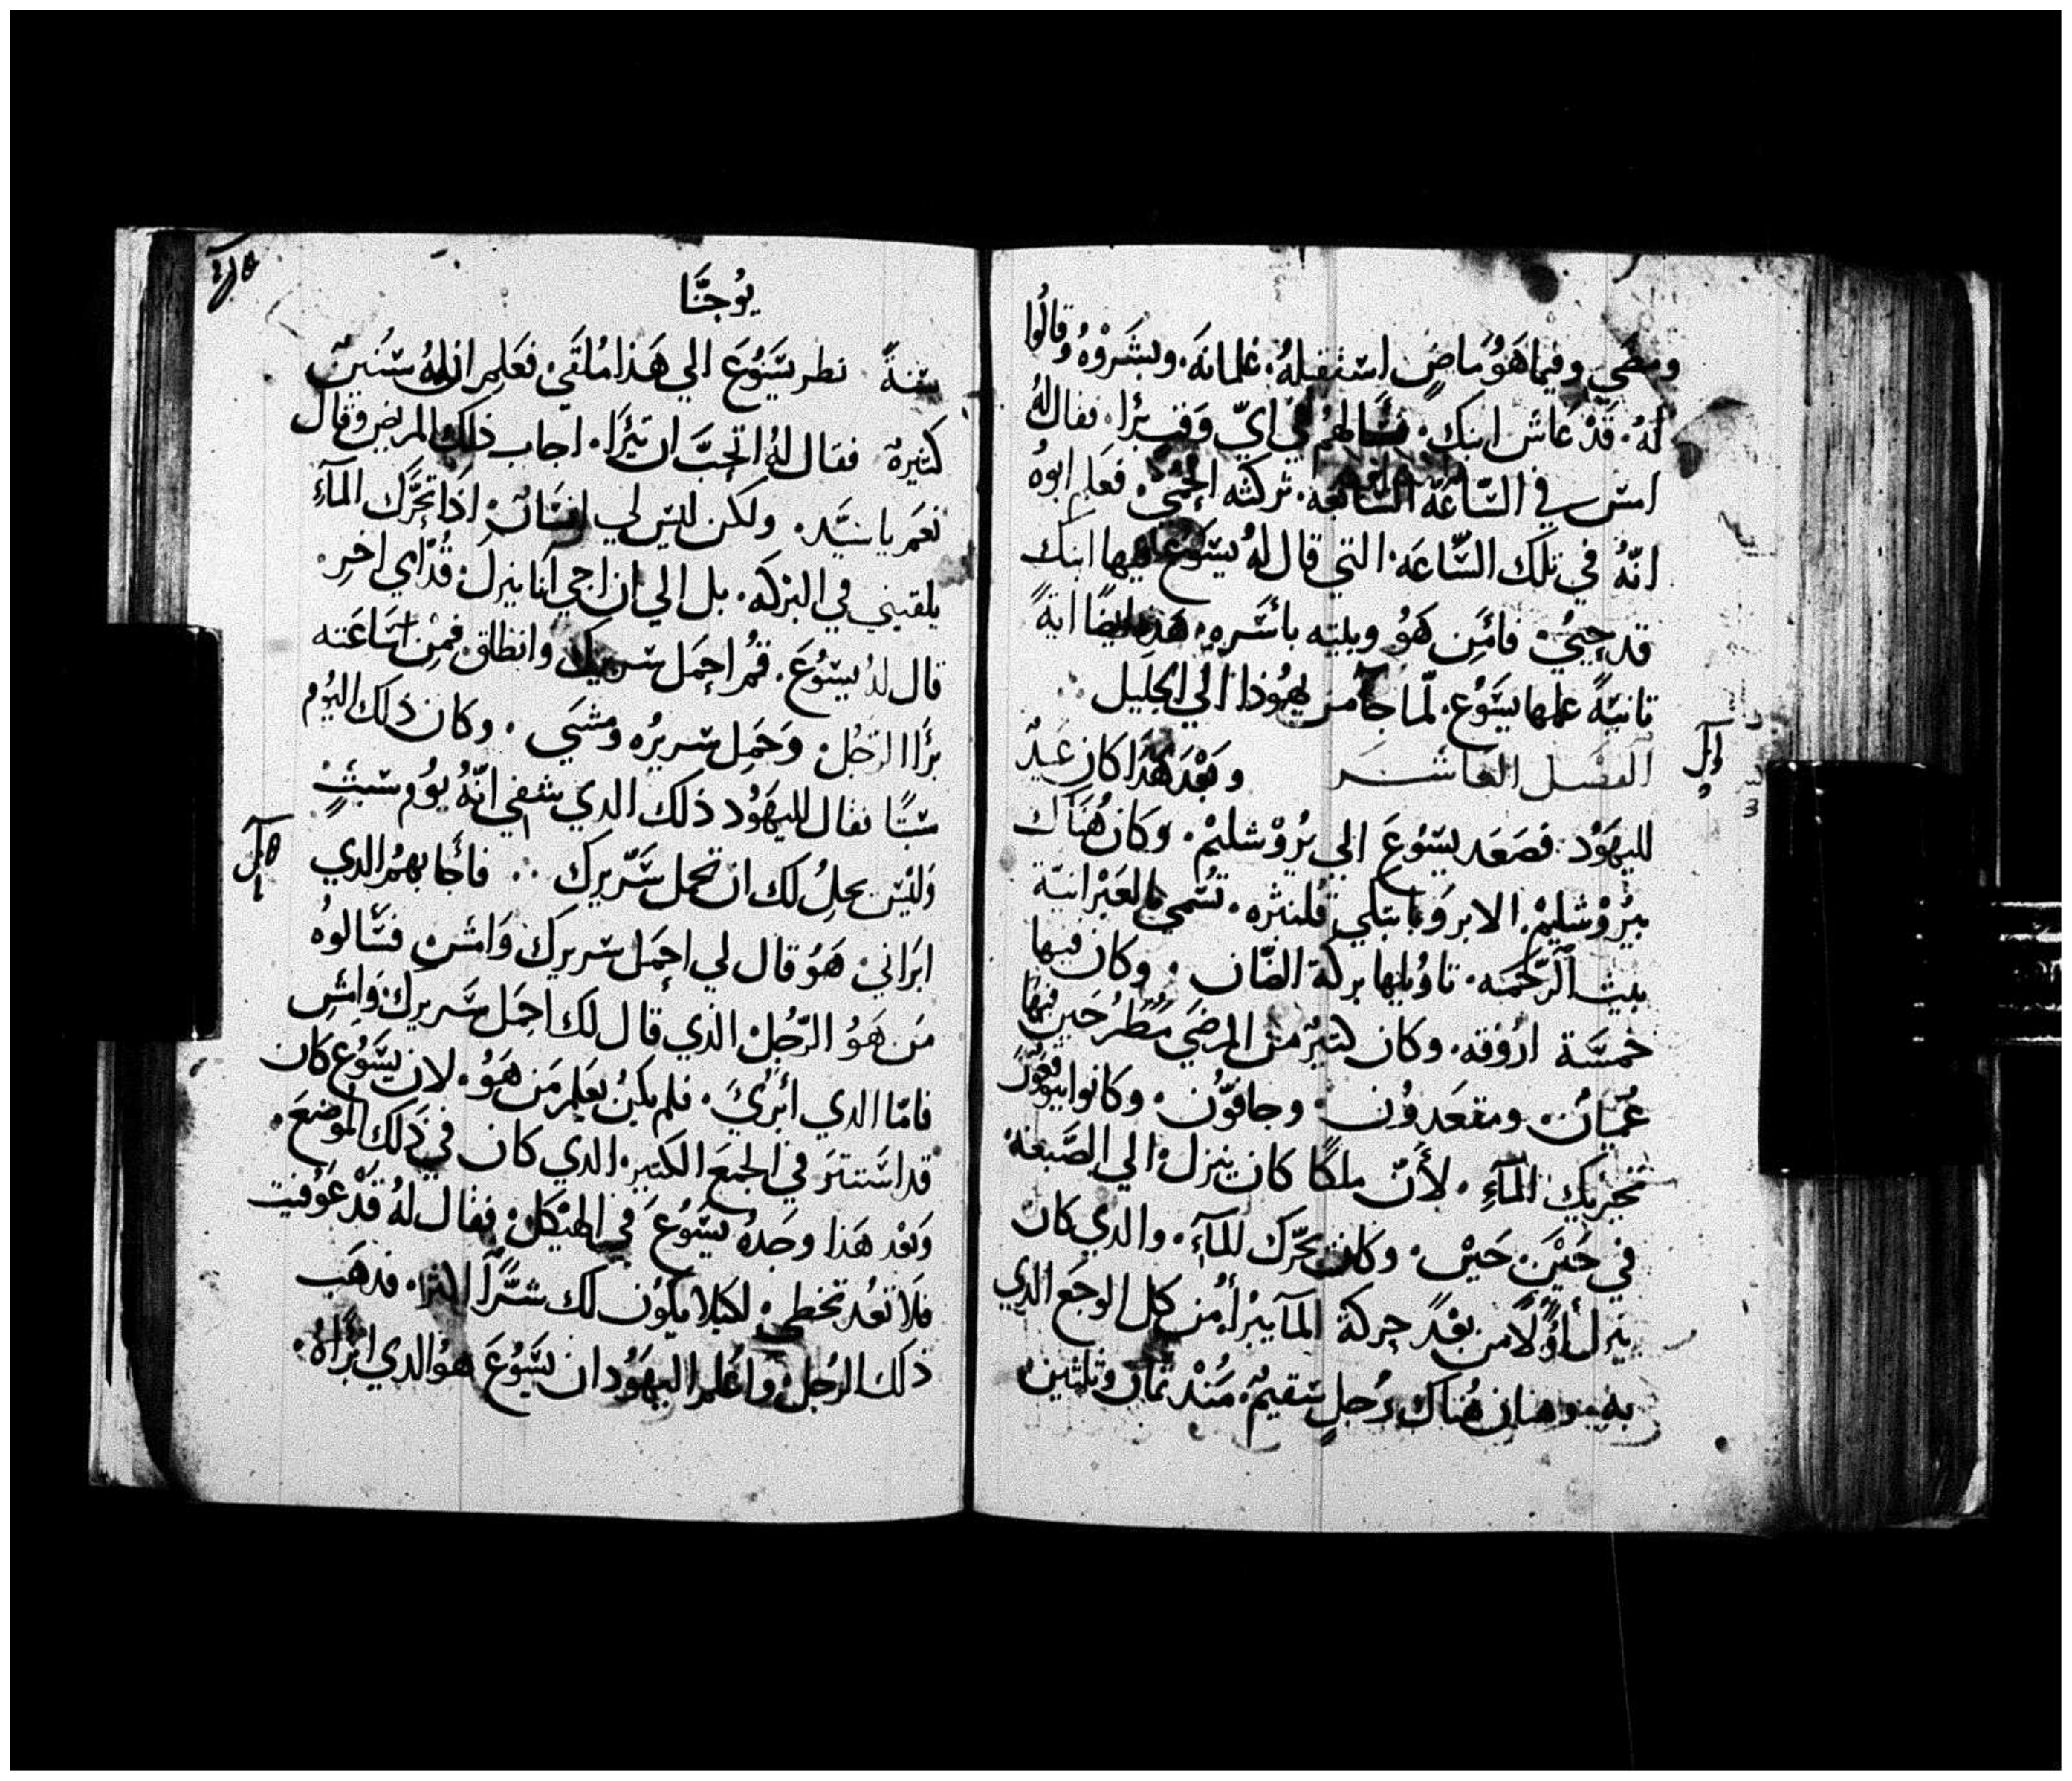 ومضي وفيما هَوُ مَاضٍ استقبلهُ غلمانهَ. وبشروْهُ وقالُوا
لهُ. قدْ عَاش ابنك. فسَّالهُم في ايّ وَقت برَا. فقال لهُ
امس في السّاعَة السَّابعَة. تركته الحُمّيْ. فعَلم ابوهُ
انّهُ في تلك السَّاعَة. التي قال لهُ يسَوُع فيها ابنك
قد حِييْ. فامَن هَوُ وبيته باسَره. هَذه ايضًا ايةً
تانيَةً عملها يسَوُع. لمّا جآ من يهُوذا الي الجَليل
الفصْل العَاشر وَبَعْدَ هَذَا كان عَيدٌ
لليهَوُد. فصَعَد يسَوُعَ الي يرُوْشليمْ. وَكانَ هُنَاك
بيرُوْشليمْ. الابروَباتيكي قلنبثره. تسُمي بالعَبْرانيَة
بيت الرَّحمَه. تاوُيلها بركة الضّان. وكان فيها
خمسَة اروُقه. وكان كتيرٌ من المرضَي مُطرُحَين فيهَا
عُميَانْ. ومقعَدوُن. وجافوُّن. وكانوا يتوَقعوُن
تحْريك المآءِ. لأَنّ ملكًا كان ينزل الي الصَّبغة
في حَيْنٍ حَيْن. وكان يحَّرك المآءَ. والدي كان
ينزل أوّلاً من بَعْد حركة المآ يبرأ من كل الوجَع الدي
به وكان هُناك رجل سَقيم. مُنْد تمان وتلتينْ
يوُحنَّا
سَنةً نظر يسَوُعَ الي هَذا مُلقَي. فعَلم ان لهُ سَنينٌ
كتيرة فقال لهُ اتحبَّ ان تبْرَا. اجاب ذلك المريض وقال
نعَم يا سَيّد. ولكن ليسَ لي انسَانْ. اذا تحرَّك المآءَ
يلقيني في البرْكه. بل الي ان اجي انا ينزل قدَّامي اخرْ.
قال لهُ يسَوُعَ. قمُ احمَل سَريرك وانطلق. فمِن سَاعَته
برَأ الرَجُل. وَحَمل سَريرُه ومشَي. وكان ذلك اليَوُم
سَبتًا فقال لليهَوُد ذلك الدي شفي انّهُ يوُم سَبتٍ
وَليْسَ يحلُ لك ان تحمل سَّريرك فأجابهمُ الدي
ابرَاني. هَوُ قال لي احمَل سَريرك وَامش. فسَّالوهُ
مَن هَوُ الرَّجُل. الذي قال لك احمِل سَريرك. وَامشِ
فامّا الدي أبريَ. فلم يكنُ يعَلم مَن هَوُ. لان يسَوُع كان
قد استَترَ في الجمعَ الكتير. الدي كان في ذَلك الموضعَ.
وَبعْد هَذا وجَدهُ يسَوُعَ في الهَيْكل. فقال لهُ قدْ عَوُفيت
فلاَ تعُد تخطي. لكيلا يكوُن لك شرًّا اشَرّا. فدهَب
ذلك الرُجل. واعلَم اليهَوُد ان يسَوُعَ هوُ الدي ابرَاهُ.